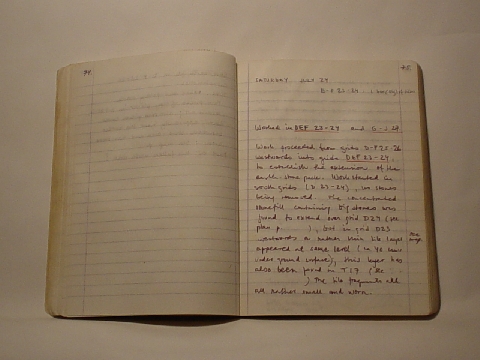 74
75
SATURDAY JULY 29
Worked in DEF 23-24 and G-J 24
Work proceeded from grids D-F 25-26
westwards into grids DEF 23-24,
to establish the extension of the
earth stone pack. Work started in
south grids (D 23-24), no stones
being removed. The concentrated
stonefill containing big stones was
found to extend over grid D24 (see
plan p ), but in grid D23
a rather thin tile layer
appeared at same level (in
under ground surface), this layer has
also been found in T17 (see
) The tile fragments all
are rather small and worn.